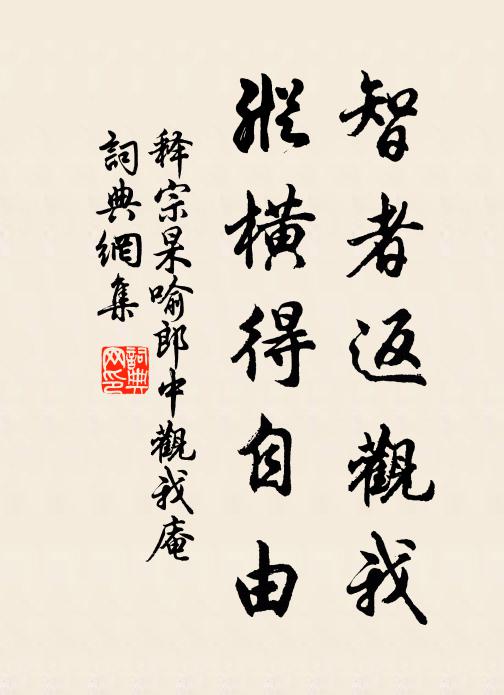 智者返觀我
縱橫得自由
释宗杲喻郎中觀我庵
詞典網集
詞典网印